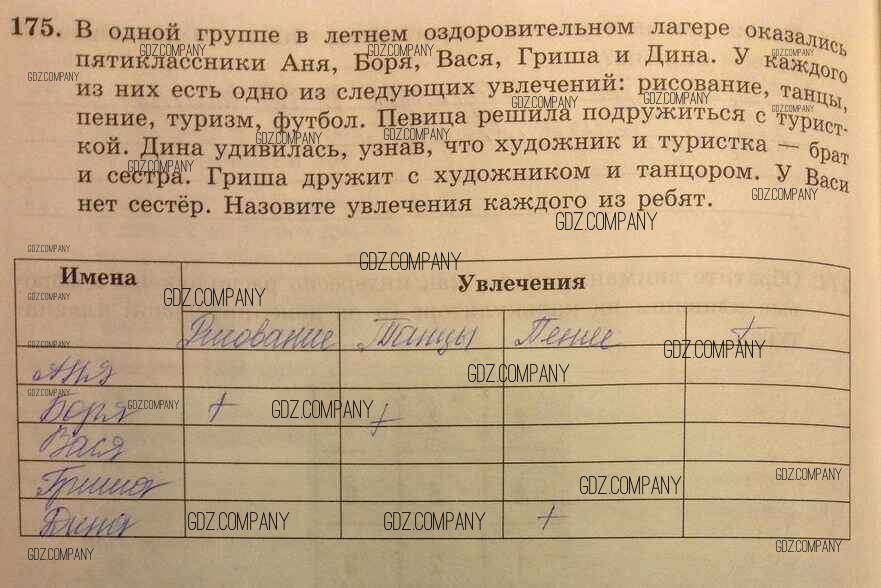 175. В одной группе в летнем оздоровительном лагере оказались
пятиклассники Аня, Боря, Вася, Гриша и Дина. У каждого
из них есть одно из следующих увлечений: рисование, танцы,
пение, туризм, футбол. Певица решила подружиться с турист-
кой. Дина удивилась, узнав, что художник и туристка — брат
и сестра. Гриша дружит с художником и танцором. У Васи
нет сестёр. Назовите увлечения каждого из ребят.
GDZ.COMPANY
Имена Увлечения
Рисование Танцы Пение +
Аня
Боря + +
Вася
Гриша
Дина +